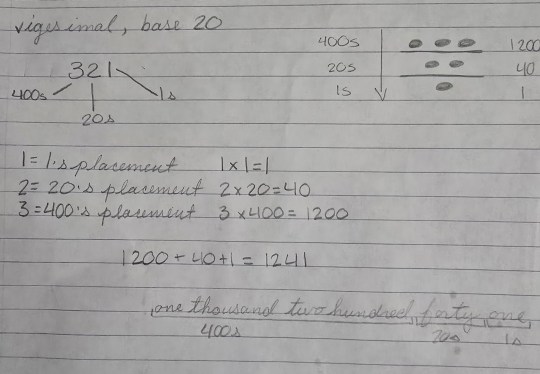 vigesimal, base 20
400s 1200
20s 40
1s 1
321
400s 1s
20s
1 = 1's placement 1 x 1 = 1
2 = 20's placement 2 x 20 = 40
3 = 400's placement 3 x 400 = 1200
1200 + 40 + 1 = 1241
one thousand two hundred, forty, one,
400s 20s 1s